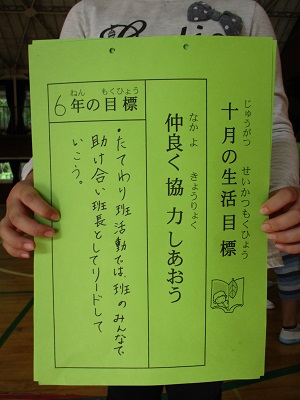 十月の生活目標
じゅうがつ せいかつもくひょう
仲良く協力しあおう
なかよ きょうりょく
6年の目標
ねん もくひょう
・たてわり班活動では、班のみんなで
助け合い班長としてリードして
いこう。